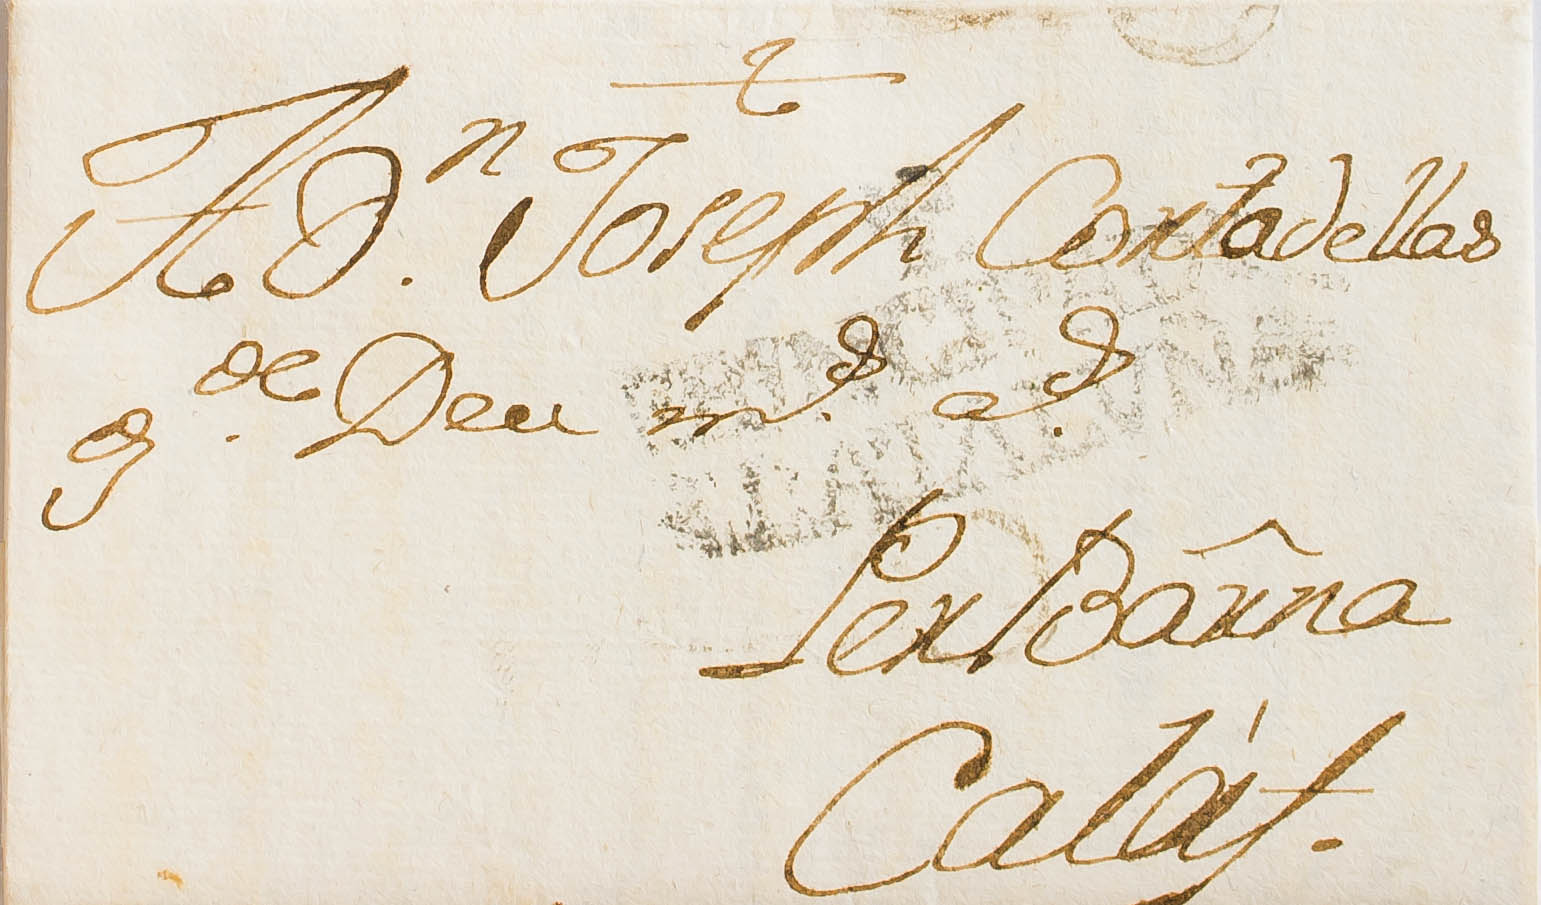 A Dn. Joseph Cortadellas
gde. Deu ms. as.
Per Barna
Calaf.